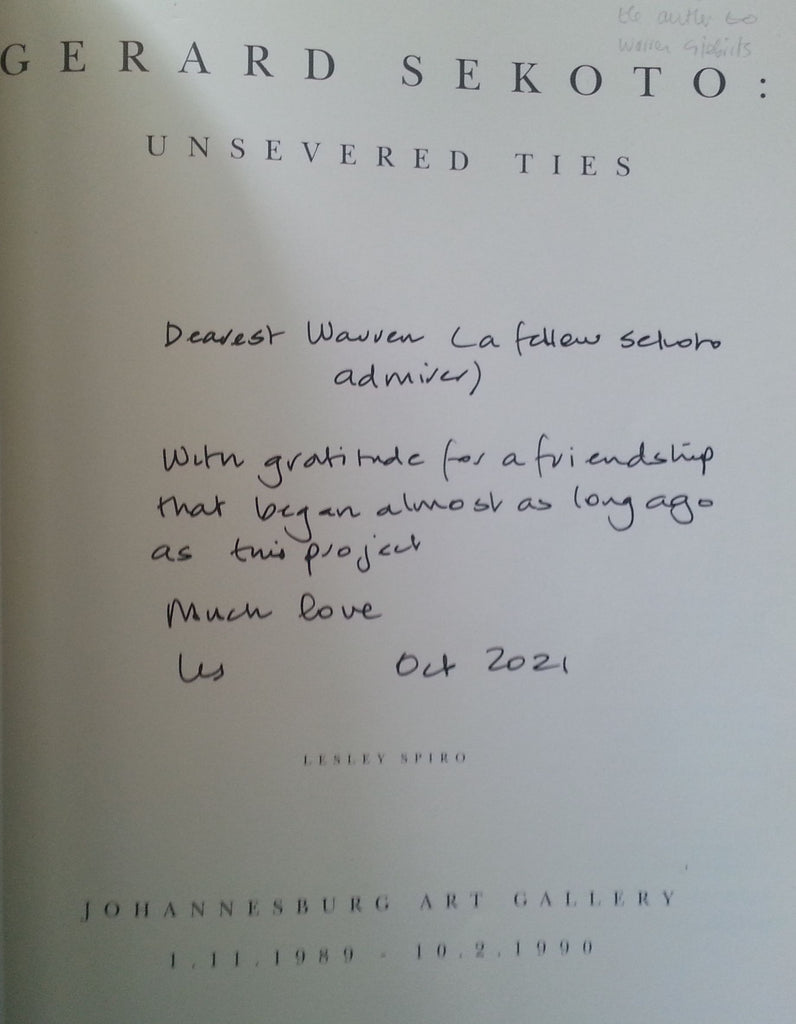 the author to
Warren
GERARD SEKOTO:
UNSEVERED TIES
Dearest Warren (a fellow Sekoto
admirer)
With gratitude for a friendship
that began almost as long ago
as this project
Much love
Les Oct 2021
LESLEY SPIRO
JOHANNESBURG ART GALLERY
1.11.1989 - 10.2.1990